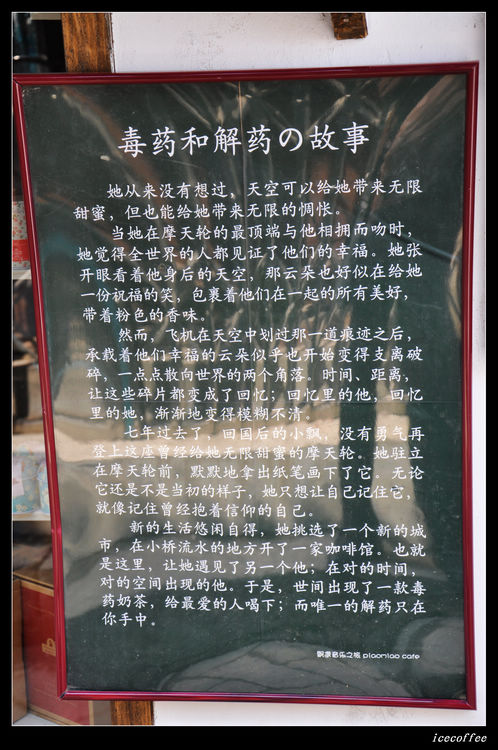 毒药和解药の故事
她从来没有想过，天空可以给她带来无限
甜蜜，但也能给她带来无限的惆怅。
当她在摩天轮的最顶端与他相拥而吻时，
她觉得全世界的人都见证了他们的幸福。她张
开眼看着他身后的天空，那云朵也好似在给她
一份祝福的笑，包裹着他们在一起的所有美好，
带着粉色的香味。
然而，飞机在天空中划过那一道痕迹之后，
承载着他们幸福的云朵似乎也开始变得支离破
碎，一点点散向世界的两个角落。时间、距离，
让这些碎片都变成了回忆；回忆里的他，回忆
里的她，渐渐地变得模糊不清。
七年过去了，回国后的小飘，没有勇气再
登上这座曾经给她无限甜蜜的摩天轮。她驻立
在摩天轮前，默默地拿出纸笔画下了它。无论
它还是不是当初的样子，她只想让自己记住它，
就像记住曾经抱着信仰的自己。
新的生活悠闲自得，她挑选了一个新的城
市，在小桥流水的地方开了一家咖啡馆。也就
是这里，让她遇见了另一个他；在对的时间，
对的空间出现的他。于是，世间出现了一款毒
药奶茶，给最爱的人喝下；而唯一的解药只在
你手中。
piaomiao cafe
icecoffee